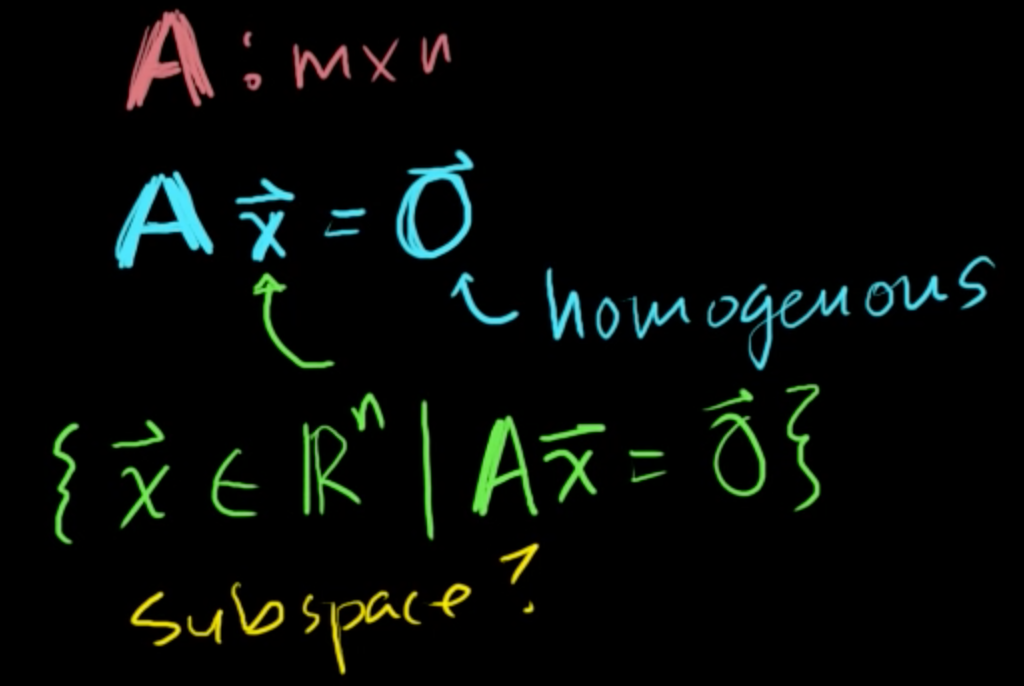 A : m×n
A x⃗ = 0⃗
homogenous
{ x⃗ ∈ ℝⁿ | A x⃗ = 0⃗ }
subspace?